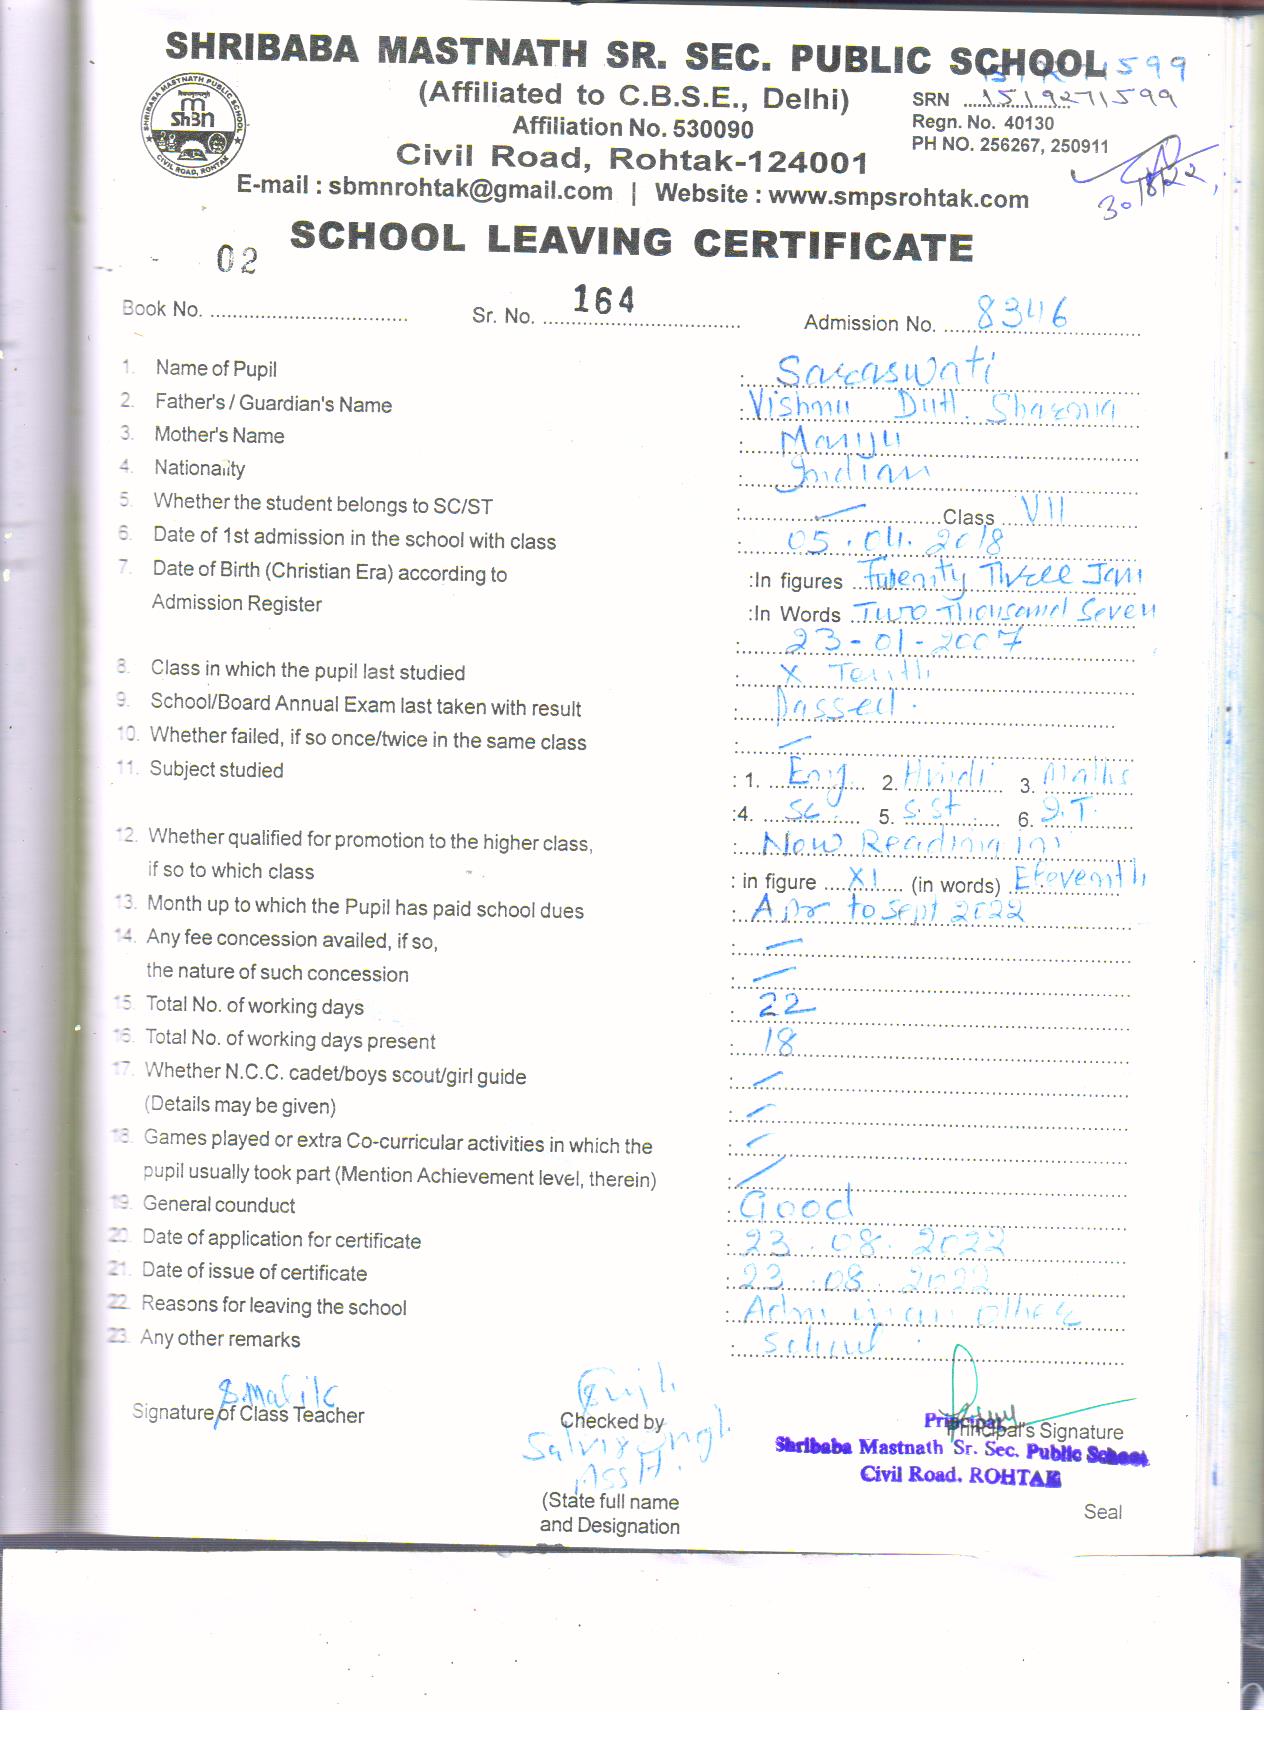 SHRIBABA MASTNATH SR. SEC. PUBLIC SCHOOL
(Affiliated to C.B.S.E., Delhi)
SRN 1519271599
Affiliation No. 530090
Regn. No. 40130
Civil Road, Rohtak-124001
PH NO. 256267, 250911
E-mail : sbmnrohtak@gmail.com | Website : www.smpsrohtak.com
30/8/22
SHRIBABA MASTNATH PUBLIC SCHOOL
CIVIL ROAD, ROHTAK
SCHOOL LEAVING CERTIFICATE
Book No. 02 Sr. No. 164 Admission No. 8346
1. Name of Pupil : Saraswati
2. Father's / Guardian's Name : Vishnu Dutt Sharma
3. Mother's Name : Manju
4. Nationality : Indian
5. Whether the student belongs to SC/ST : — Class VII
6. Date of 1st admission in the school with class : 05.04.2018
7. Date of Birth (Christian Era) according to :In figures Twenty Three Jan
Admission Register :In Words Two Thousand Seven
: 23-01-2007
8. Class in which the pupil last studied : X Tenth
9. School/Board Annual Exam last taken with result : Passed.
10. Whether failed, if so once/twice in the same class : —
11. Subject studied : 1. Eng 2. Hindi 3. Maths
:4. Sc. 5. S.St 6. I.T.
12. Whether qualified for promotion to the higher class, : Now Reading in
if so to which class : in figure XI (in words) Eleventh
13. Month up to which the Pupil has paid school dues : Apr to Sept 2022
14. Any fee concession availed, if so, : —
the nature of such concession : —
15. Total No. of working days : 22
16. Total No. of working days present : 18
17. Whether N.C.C. cadet/boys scout/girl guide : —
(Details may be given) : —
18. Games played or extra Co-curricular activities in which the : —
pupil usually took part (Mention Achievement level, therein) : —
19. General counduct : Good
20. Date of application for certificate : 23.08.2022
21. Date of issue of certificate : 23.08.2022
22. Reasons for leaving the school : Adm in an other
23. Any other remarks : school.
S. Malik
Signature of Class Teacher
Checked by
Principal's Signature
Principal
Shribaba Mastnath Sr. Sec. Public School
Civil Road. ROHTAK
(State full name
and Designation
Seal